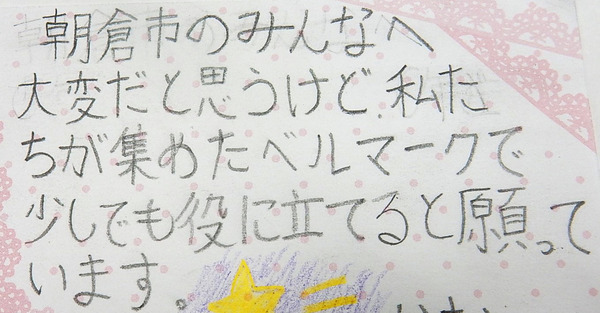 朝倉市のみんなへ
大変だと思うけど、私た
ちが集めたベルマークで
少しでも役に立てると願って
います。